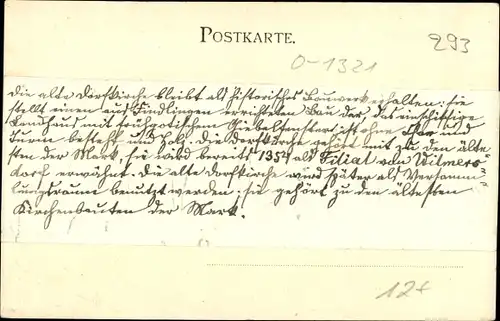 POSTKARTE.
293
0-1321
die alte Dorfkirche bleibt als historisches Bauwerk erhalten: sie
stellt einen aus Findlingen errichteten Bau dar, das einschiffige
Landhaus mit frühgotischem Giebelfenstern ist ohne Chor und
Turm besteht und Holz. Die Dorfkirche gehört mit zu den älte=
sten der Mark, sie wird bereits 1354 als Filial von Wilmers=
dorf erwähnt. Die alte Dorfkirche wird später als Versamm=
lungsraum benutzt werden: sie gehört zu den ältesten
Kirchenbauten der Mark.
12+